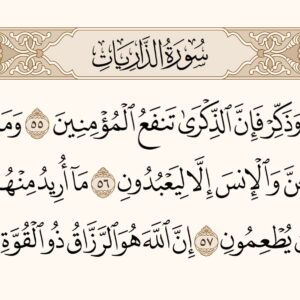 سُورَةُ الذَّارِيَاتِ
وَذَكِّرْ فَإِنَّ الذِّكْرَىٰ تَنفَعُ الْمُؤْمِنِينَ ٥٥
وَالْإِنسَ إِلَّا لِيَعْبُدُونِ ٥٦ مَا أُرِيدُ
يُطْعِمُونِ ٥٧ إِنَّ اللَّهَ هُوَ الرَّزَّاقُ ذُو الْقُوَّةِ